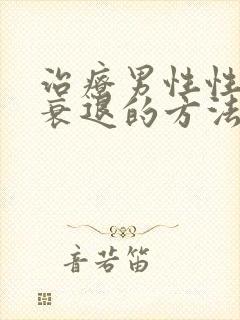 治疗男性性
衰退的方法
音若笛